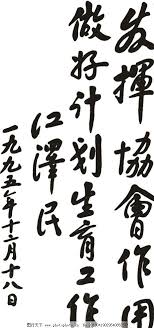 发挥協會作用
做好计划生育工作
江澤民
一九九五年十二月十八日